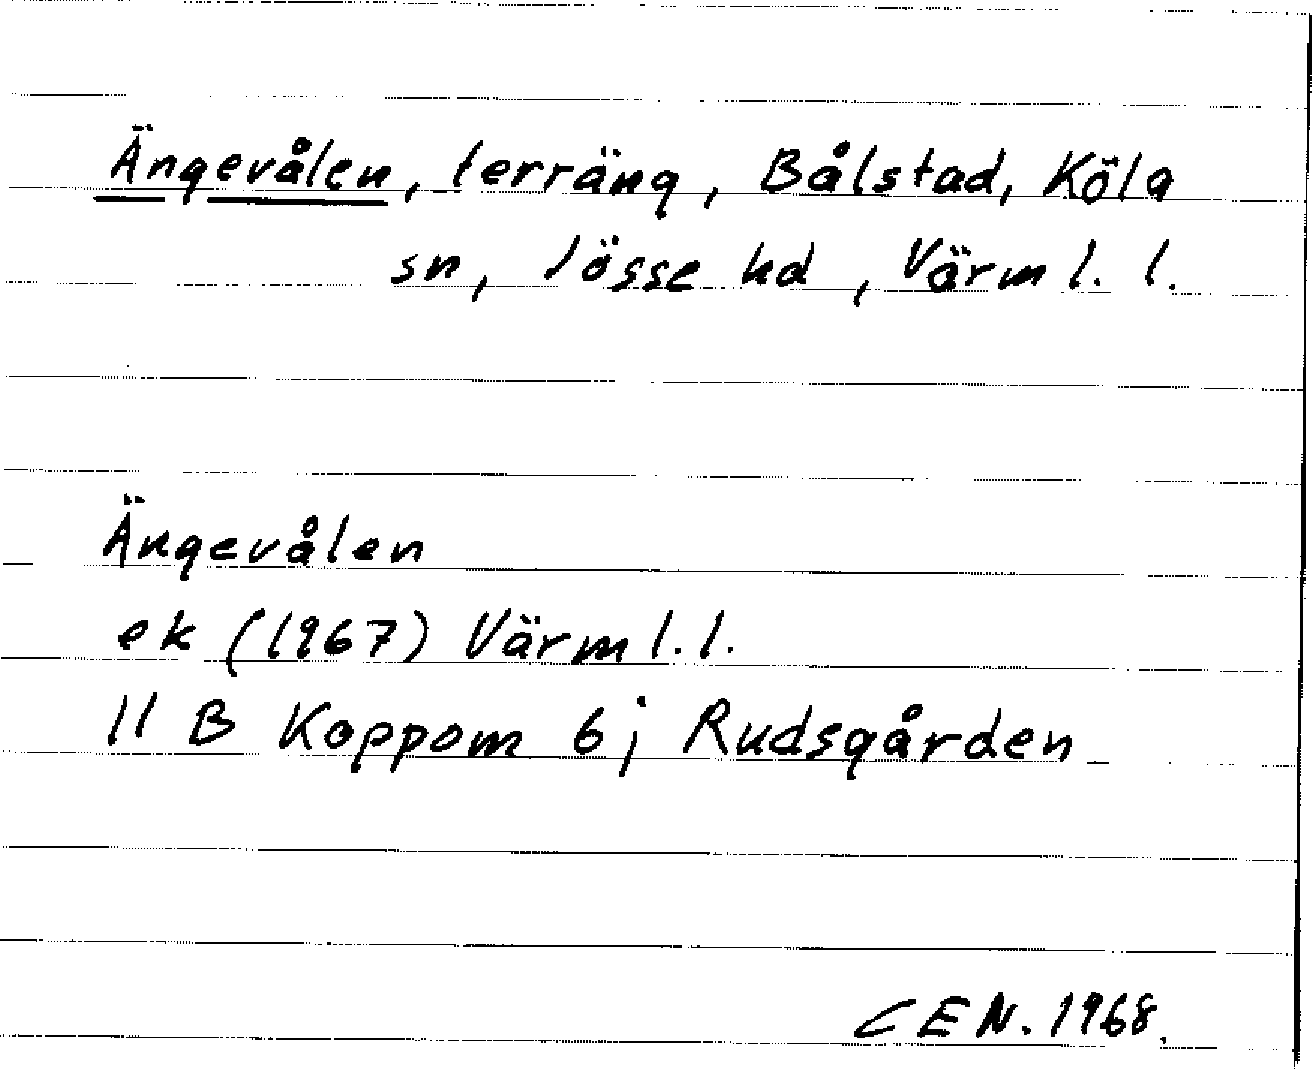 Ängevålen, terräng, Bålstad, Köla
sn, Jösse hd, Värml. l.
Ängevålen
ek (1967) Värml. l.
11 B Koppom 6j Rudsgården
CEN. 1968.